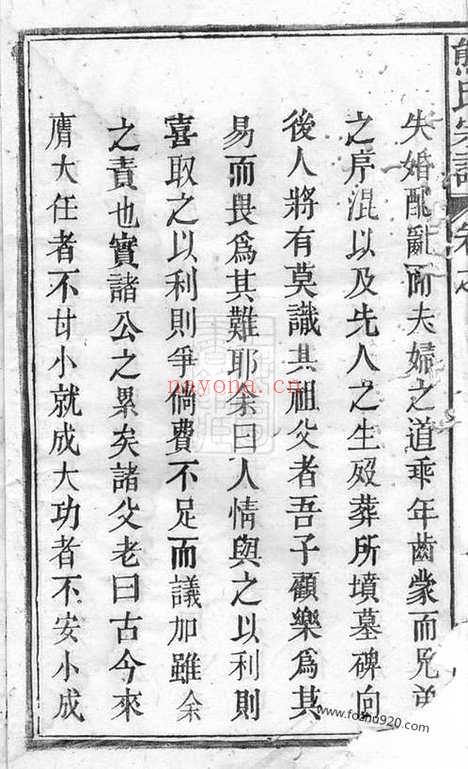 熊氏宗譜
卷之
失婚配亂而夫婦之道乖年齒蒙而兄弟
之序混以及先人之生殁葬所墳墓碑向
後人將有莫識其祖父者吾子顧樂為其
易而畏為其難耶余曰人情與之以利則
喜取之以利則爭倘費不足而議加雖余
之責也實諸公之累矣諸父老曰古今來
膺大任者不甘小就成大功者不安小成
nayona.cn
www.foshu920.com